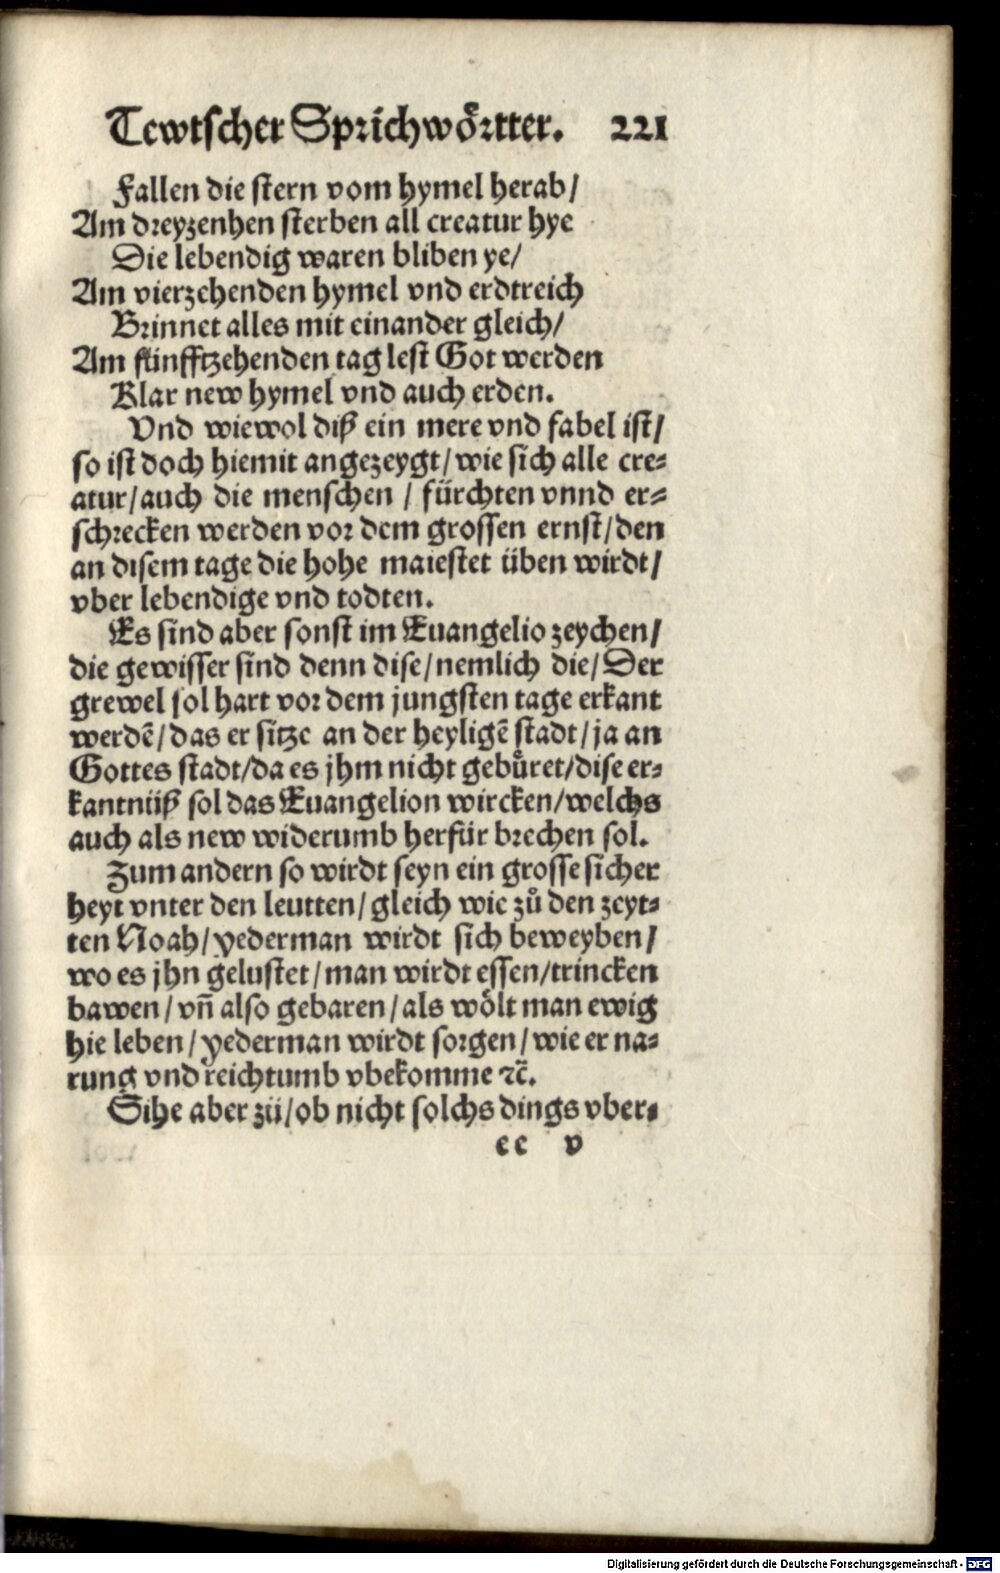 Tewtscher Sprichwoͤrtter. 221
Fallen die stern vom hymel herab/
Am dreyzenhen sterben all creatur hye
Die lebendig waren bliben ye/
Am vierzehenden hymel vnd erdtreich
Brinnet alles mit einander gleich/
Am fünfftzehenden tag lest Got werden
Klar new hymel vnd auch erden.
Vnd wiewol diß ein mere vnd fabel ist/
so ist doch hiemit angezeygt/wie sich alle cre⸗
atur/auch die menschen / fürchten vnnd er⸗
schrecken werden vor dem grossen ernst/den
an disem tage die hohe maiestet üben wirdt/
vber lebendige vnd todten.
Es sind aber sonst im Euangelio zeychen/
die gewisser sind denn dise/nemlich die/Der
grewel sol hart vor dem jungsten tage erkant
werdẽ/das er sitze an der heyligẽ stadt/ja an
Gottes stadt/da es jhm nicht gebuͤret/dise er⸗
kantnüß sol das Euangelion wircken/welchs
auch als new widerumb herfür brechen sol.
Zum andern so wirdt seyn ein grosse sicher
heyt vnter den leutten/gleich wie zuͦ den zeyt⸗
ten Noah/yederman wirdt sich beweyben/
wo es jhn gelustet/man wirdt essen/trincken
bawen/vñ also gebaren/als woͤlt man ewig
hie leben/yederman wirdt sorgen/wie er na⸗
rung vnd reichtumb vbekomme ꝛc̃.
Sihe aber zü/ob nicht solchs dings vber⸗
ee v
Digitalisierung gefördert durch die Deutsche Forschungsgemeinschaft - DFG